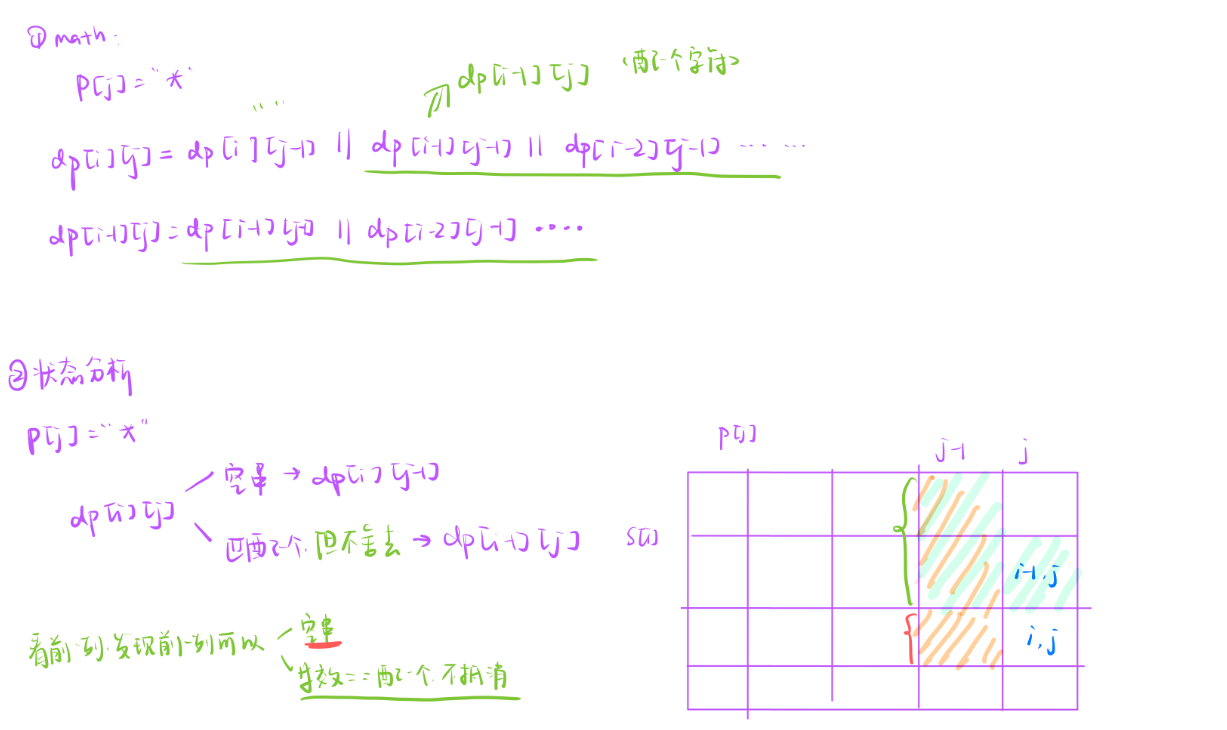 ① math:
P[j]="*"
dp[i-1][j] (配了一个字符)
" "
dp[i][j]=dp[i][j-1] || dp[i-1][j-1] || dp[i-2][j-1] ... ...
dp[i-1][j]=dp[i-1][j-1] || dp[i-2][j-1] ....
②状态分析
P[j]="*"
dp[i][j]
空串 → dp[i][j-1]
匹配了一个,但不舍去 → dp[i-1][j]
看前一列,发现前一列可以
空串
== 配了一个,不抵消
p[j]
j-1 j
S[i]
i-1,j
i,j